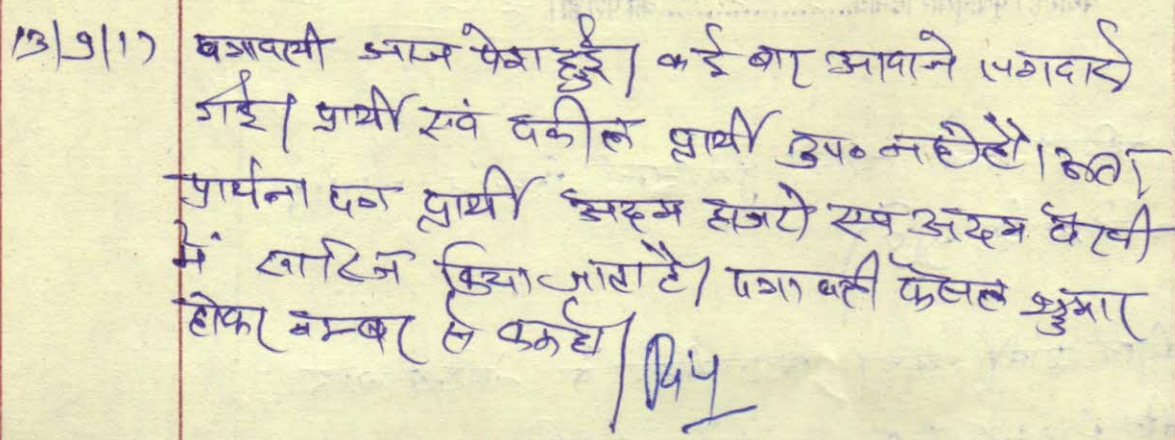 13/9/17 पत्रावली आज पेश हुई। कई बार आवाजे लगवाई
गई। प्रार्थी एवं वकील प्रार्थी उप० नहीं है। अतः
प्रार्थना पत्र प्रार्थी अदम हाजरी एवं अदम पैरवी
में खारिज किया जाता है। पत्रावली फैसल शुमार
होकर नम्बर से कम हो।